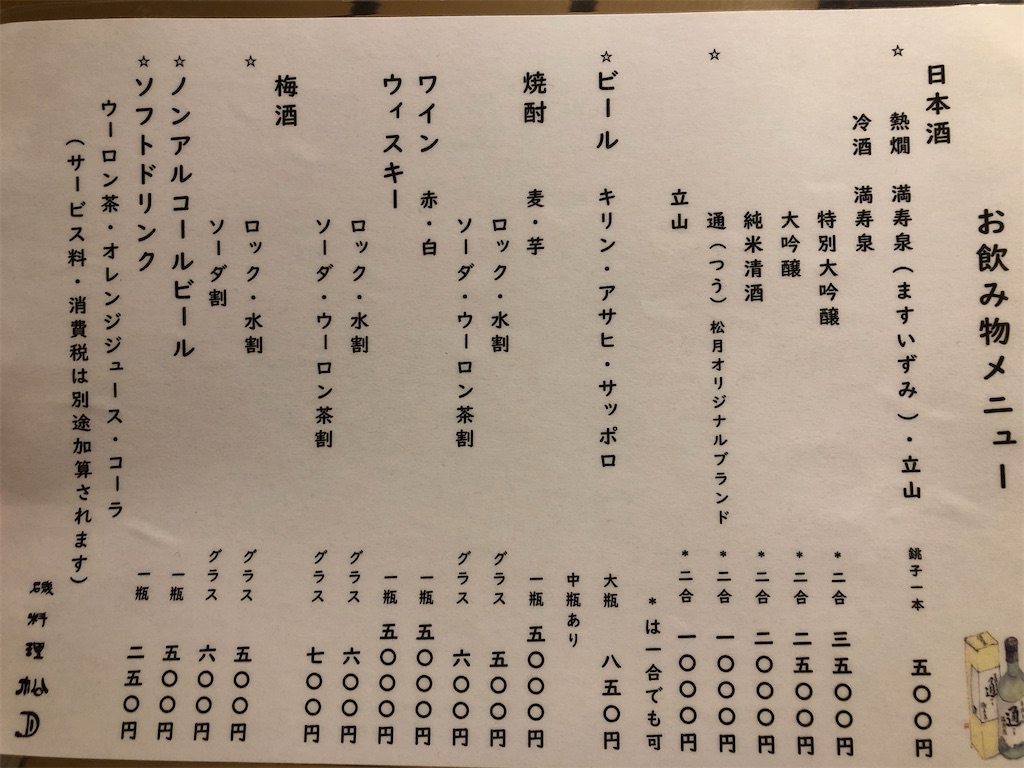 お飲み物メニュー
日本酒
☆ 熱燗 満寿泉(ますいずみ)・立山 銚子一本 五〇〇円
冷酒 満寿泉
特別大吟醸 *二合 三五〇〇円
大吟醸 *二合 二五〇〇円
純米清酒 *二合 二〇〇〇円
☆ 通(つう) 松月オリジナルブランド *二合 一〇〇〇円
立山 *二合 一〇〇〇円
*は一合でも可
☆ビール キリン・アサヒ・サッポロ 大瓶 八五〇円
中瓶あり
焼酎 麦・芋 一瓶 五〇〇〇円
ロック・水割 グラス 五〇〇円
ソーダ・ウーロン茶割 グラス 六〇〇円
ワイン 赤・白 一瓶 五〇〇〇円
ウィスキー 一瓶 五〇〇〇円
ロック・水割 グラス 六〇〇円
ソーダ・ウーロン茶割 グラス 七〇〇円
梅酒
☆ ロック・水割 グラス 五〇〇円
ソーダ割 グラス 六〇〇円
☆ノンアルコールビール 一瓶 五〇〇円
☆ソフトドリンク 一瓶 二五〇円
ウーロン茶・オレンジジュース・コーラ
(サービス料・消費税は別途加算されます)
磯料理松月
通
通